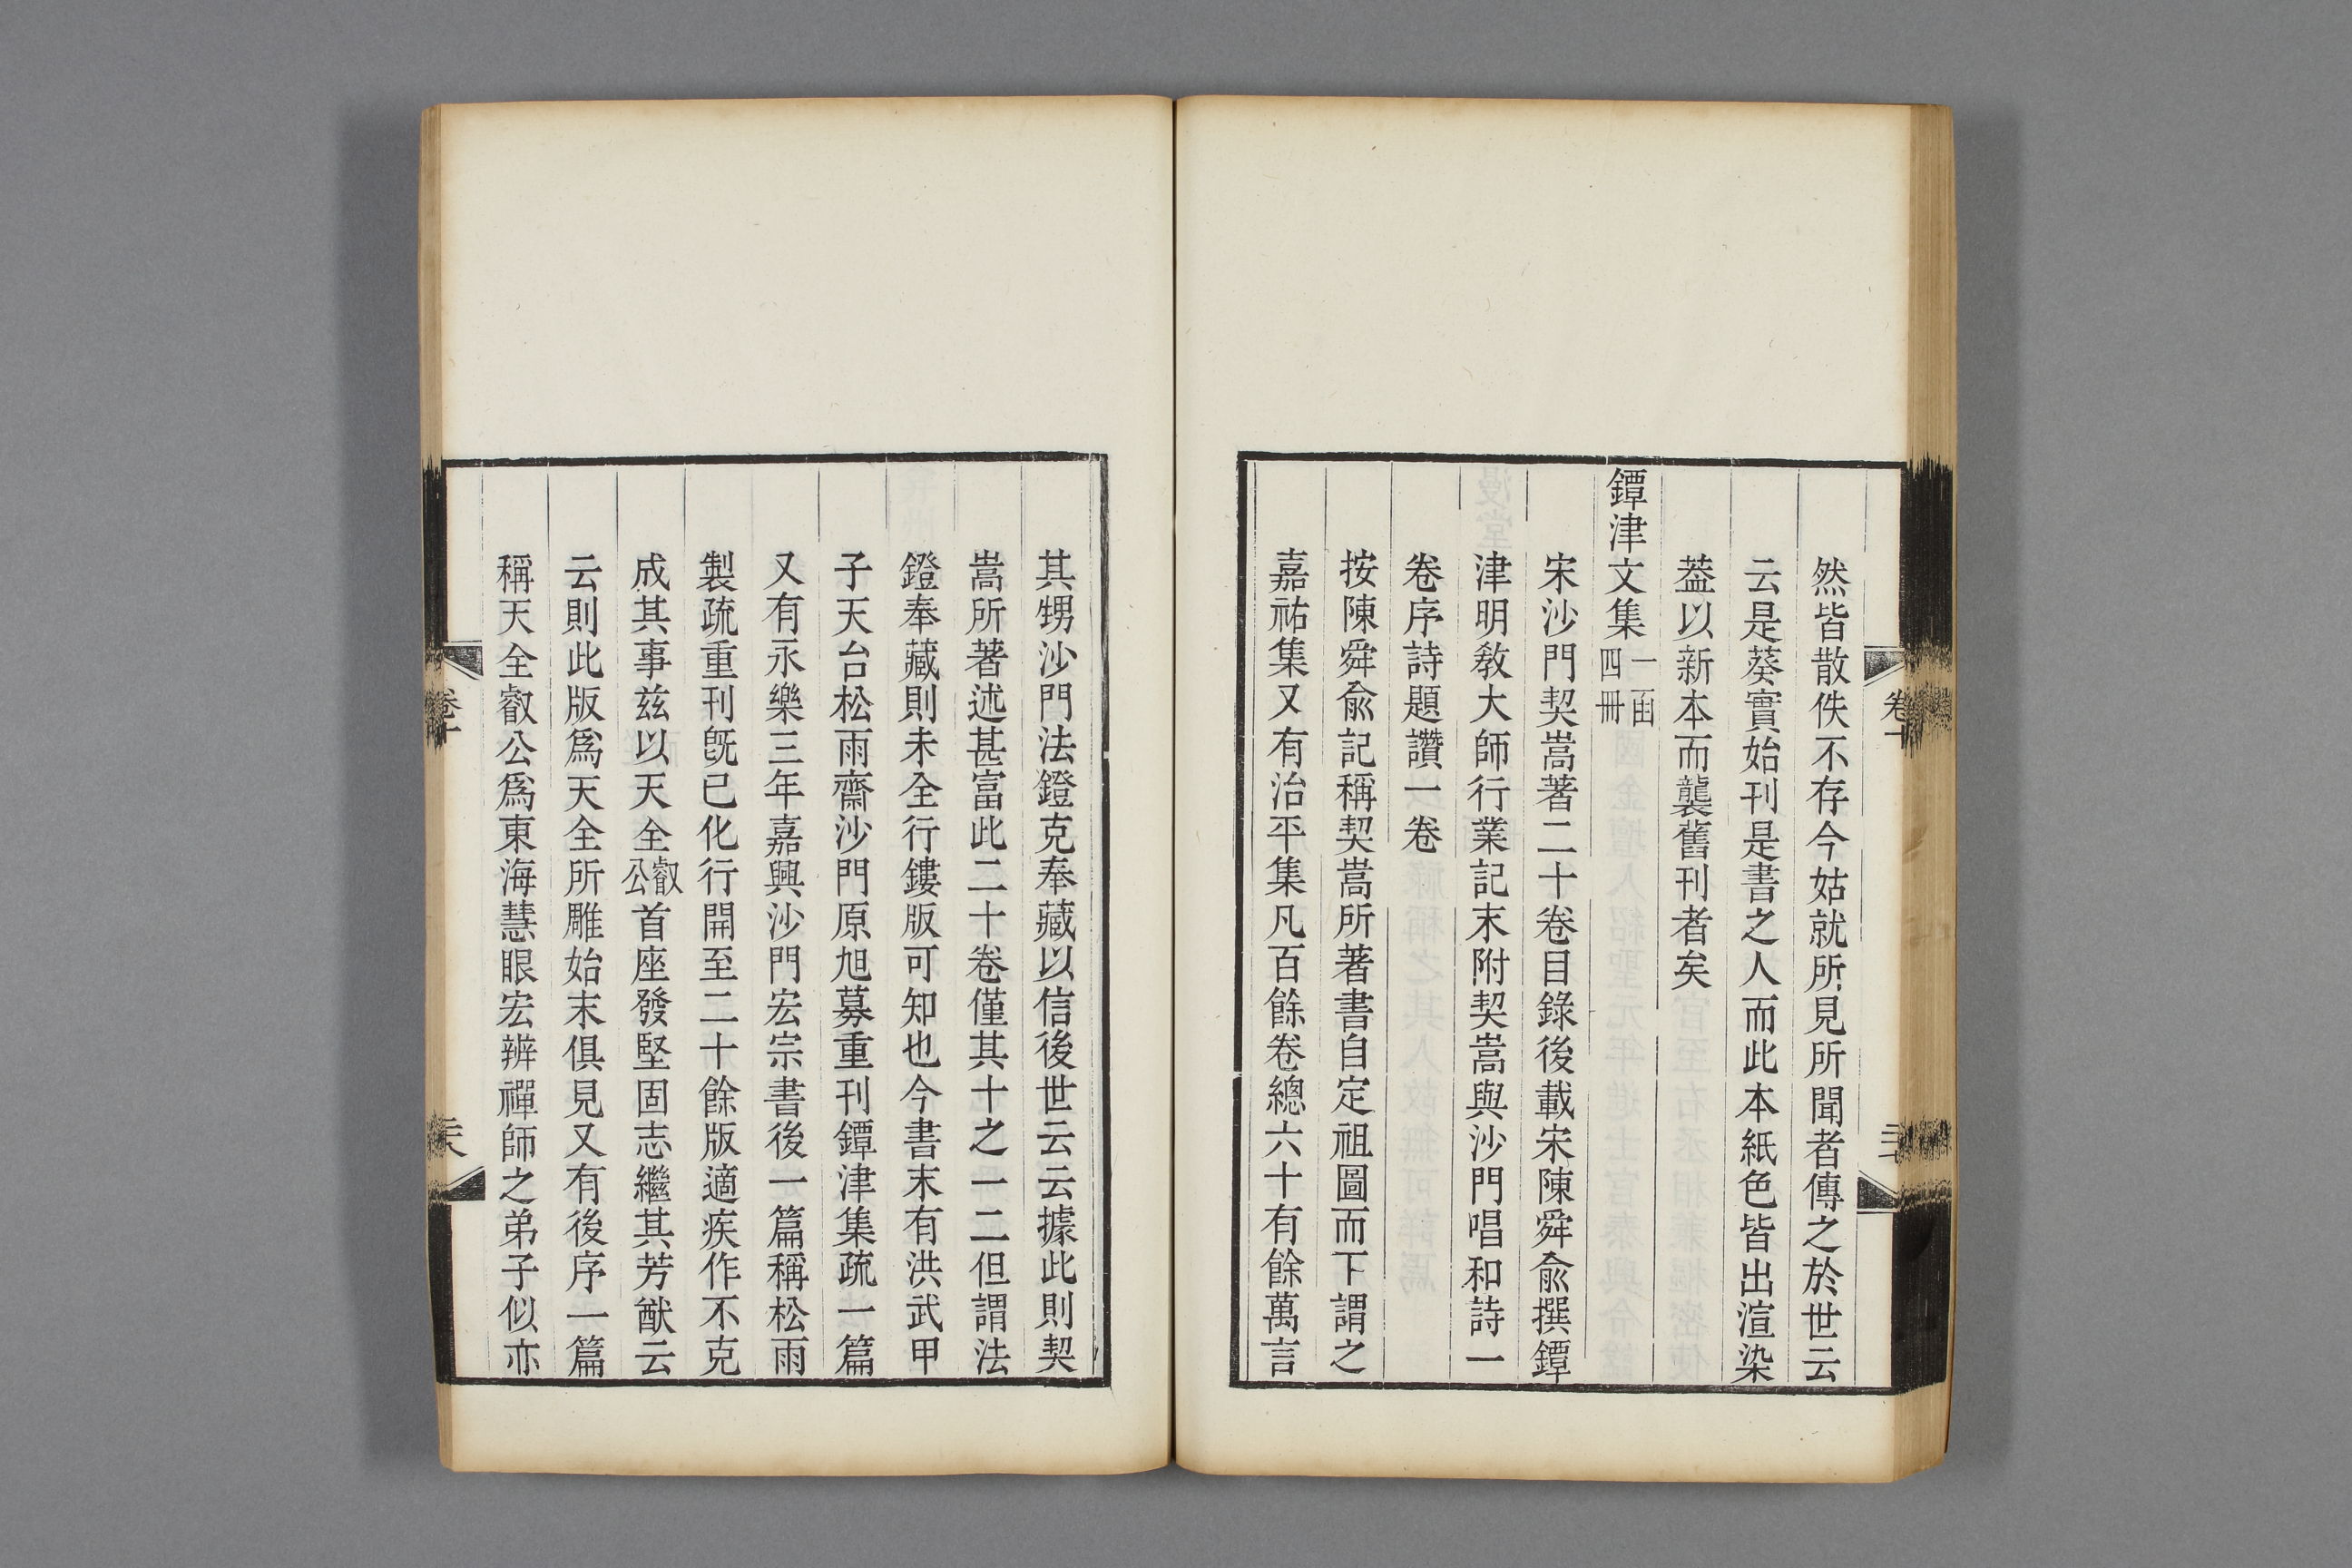 然皆散佚不存今姑就所見所聞者傳之於世云
云是葵實始刊是書之人而此本紙色皆出渲染
葢以新本而襲舊刊者矣
鐔津文集一函四冊
宋沙門契嵩著二十卷目錄後載宋陳舜俞撰鐔
津明敎大師行業記末附契嵩與沙門唱和詩一
卷序詩題讚一卷
按陳舜俞記稱契嵩所著書自定祖圖而下謂之
嘉祐集又有治平集凡百餘卷總六十有餘萬言
其甥沙門法鐙克奉藏以信後世云云據此則契
嵩所著述甚富此二十卷僅其十之一二但謂法
鐙奉藏則未全行鏤版可知也今書末有洪武甲
子天台松雨齋沙門原旭募重刊鐔津集疏一篇
又有永樂三年嘉興沙門宏宗書後一篇稱松雨
製疏重刊旣已化行開至二十餘版適疾作不克
成其事玆以天全叡公首座發堅固志繼其芳猷云
云則此版爲天全所雕始末俱見又有後序一篇
稱天全叡公爲東海慧眼宏辨禪師之弟子似亦
卷十